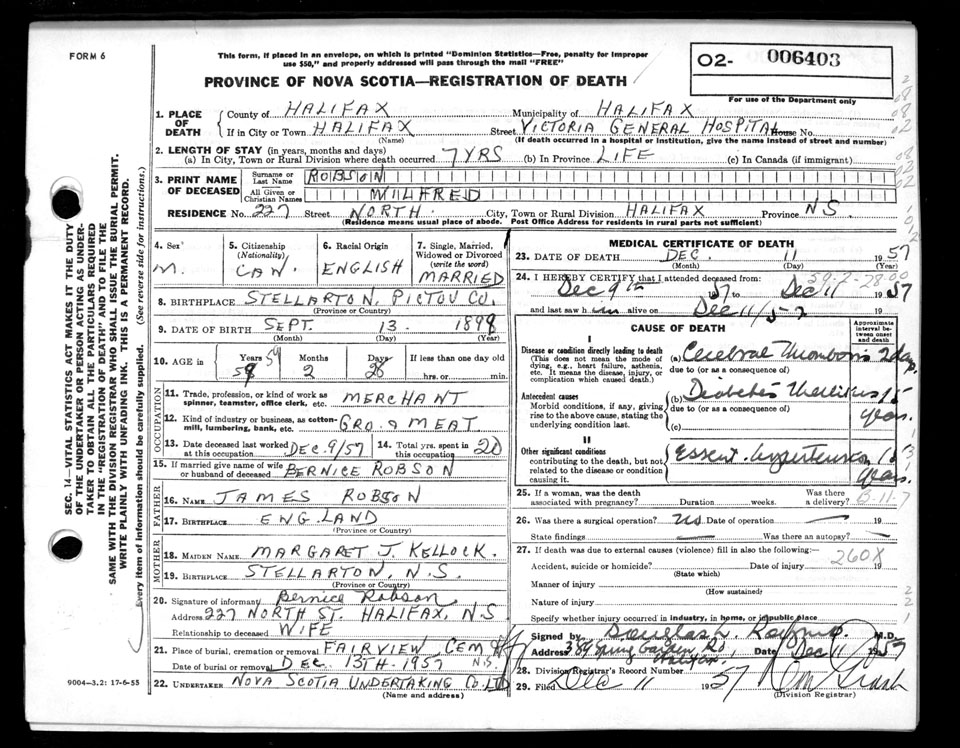 FORM 6
This form, if placed in an envelope, on which is printed "Dominion Statistics—Free, penalty for improper
use $50," and properly addressed will pass through the mail "FREE"
PROVINCE OF NOVA SCOTIA—REGISTRATION OF DEATH
02- 006403
For use of the Department only
1. PLACE OF DEATH
County of HALIFAX Municipality of HALIFAX
If in City or Town HALIFAX Street VICTORIA GENERAL HOSPITAL House No.
(Name) (If death occurred in a hospital or institution, give the name instead of street and number)
2. LENGTH OF STAY (in years, months and days)
(a) In City, Town or Rural Division where death occurred 7 YRS (b) In Province LIFE (c) In Canada (if immigrant)
3. PRINT NAME OF DECEASED
Surname or Last Name ROBSON
All Given or Christian Names WILFRED
RESIDENCE No. 227 Street NORTH. City, Town or Rural Division HALIFAX Province N.S.
(Residence means usual place of abode. Post Office Address for residents in rural parts not sufficient)
4. Sex M.
5. Citizenship (Nationality) CAN.
6. Racial Origin ENGLISH
7. Single, Married, Widowed or Divorced (write the word) MARRIED
8. BIRTHPLACE STELLARTON, PICTOU CO.
(Province or Country)
9. DATE OF BIRTH SEPT. 13. 1898
(Month) (Day) (Year)
10. AGE in Years 59 Months 2 Days 28 If less than one day old
hrs. or min.
OCCUPATION
11. Trade, profession, or kind of work as spinner, teamster, office clerk, etc. MERCHANT
12. Kind of industry or business, as cotton-mill, lumbering, bank, etc. GRO. & MEAT
13. Date deceased last worked at this occupation DEC. 9/57
14. Total yrs. spent in this occupation 20
15. If married give name of wife or husband of deceased BERNICE ROBSON
FATHER
16. NAME JAMES ROBSON
17. BIRTHPLACE ENGLAND
(Province or Country)
MOTHER
18. MAIDEN NAME MARGARET J. KELLOCK.
19. BIRTHPLACE STELLARTON, N.S.
(Province or Country)
20. Signature of informant Bernice Robson
Address 227 NORTH ST. HALIFAX, N.S
Relationship to deceased WIFE
21. Place of burial, cremation or removal FAIRVIEW CEM
Date of burial or removal DEC. 13TH. 1957 N.S.
22. UNDERTAKER NOVA SCOTIA UNDERTAKING CO. LTD
(Name and address)
MEDICAL CERTIFICATE OF DEATH
23. DATE OF DEATH DEC. 11 1957
(Month) (Day) (Year)
24. I HEREBY CERTIFY that I attended deceased from:
Dec 9th 1957 to Dec 11 1957
and last saw him alive on Dec 11/57
CAUSE OF DEATH
Approximate interval between onset and death
I
Disease or condition directly leading to death (a) Cerebral Thrombosis 2 days.
(This does not mean the mode of dying, e.g., heart failure, asthenia, etc. It means the disease, injury, or complication which caused death.)
due to (or as a consequence of)
Antecedent causes (b) Diabetes Mellitus 15 years.
Morbid conditions, if any, giving rise to the above cause, stating the underlying condition last.
due to (or as a consequence of)
(c)
II
Other significant conditions contributing to the death, but not related to the disease or condition causing it. Essent. hypertension years.
25. If a woman, was the death associated with pregnancy? Duration weeks. Was there a delivery?
26. Was there a surgical operation? No Date of operation 19
State findings Was there an autopsy?
27. If death was due to external causes (violence) fill in also the following:— 260X
Accident, suicide or homicide? Date of injury 19
(State which)
Manner of injury
(How sustained)
Nature of injury
Specify whether injury occurred in industry, in home, or in public place
Signed by M.D.
Address 389 Spring Garden Rd, Halifax. Date Dec 11 1957
28. Division Registrar's Record Number
29. Filed Dec 11 1957
(Division Registrar)
SEC. 14—VITAL STATISTICS ACT MAKES IT THE DUTY
OF THE UNDERTAKER OR PERSON ACTING AS UNDER-
TAKER TO OBTAIN ALL THE PARTICULARS REQUIRED
IN THE "REGISTRATION OF DEATH" AND TO FILE THE
SAME WITH THE DIVISION REGISTRAR WHO SHALL ISSUE THE BURIAL PERMIT.
WRITE PLAINLY WITH UNFADING INK. THIS IS A PERMANENT RECORD.
Every item of information should be carefully supplied. (See reverse side for instructions.)
9004-3.2: 17-6-55